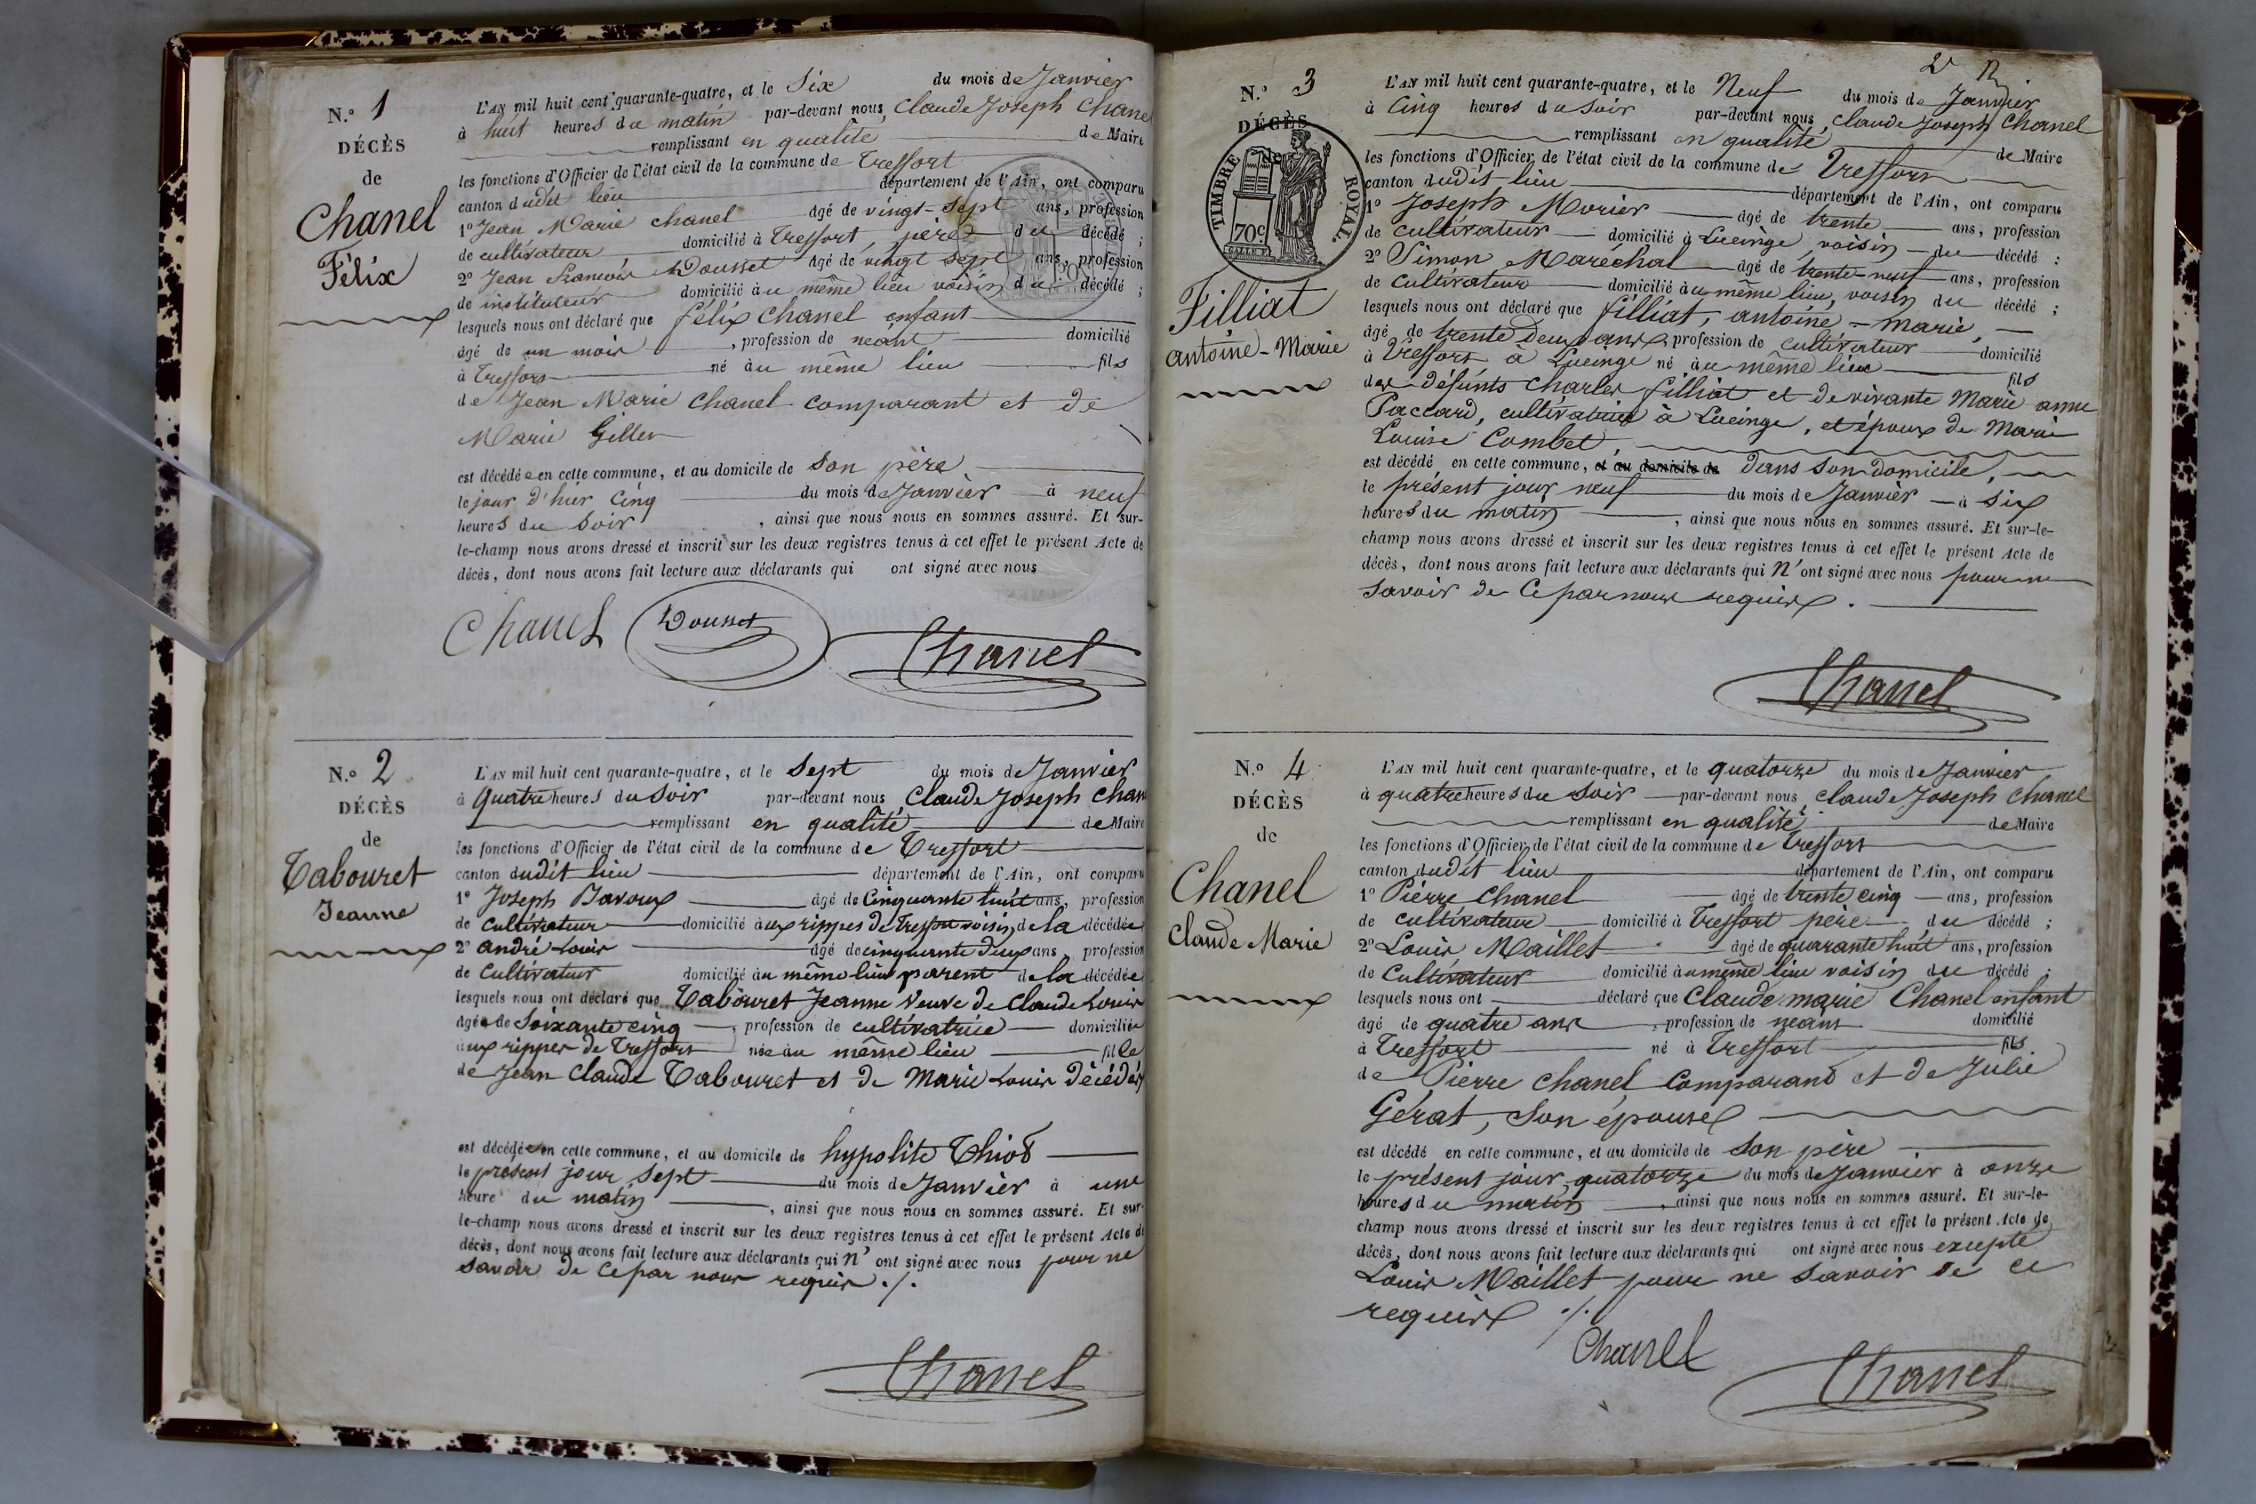 N.o 1
DÉCÈS
de
Chanel
Félix
L'AN mil huit cent quarante-quatre, et le Six du mois de Janvier
à huit heures du matin par-devant nous, Claude Joseph Chanel
remplissant en qualité de Maire
les fonctions d'Officier de l'état civil de la commune de Treffort
canton dudit lieu département de l'Ain, ont comparu
1o Jean Marie Chanel âgé de vingt-sept ans, profession
de cultivateur domicilié à Treffort, père du décédé ;
2o Jean François Dousset âgé de vingt sept ans, profession
de instituteur domicilié au même lieu voisin du décédé ;
lesquels nous ont déclaré que félix Chanel enfant
âgé de un mois, profession de néant domicilié
à Treffort né au même lieu fils
de Jean Marie Chanel comparant et de
Marie Giller
est décédé en cette commune, et au domicile de son père
le jour d'hier cinq du mois de Janvier à neuf
heures du soir, ainsi que nous nous en sommes assuré. Et sur-
le-champ nous avons dressé et inscrit sur les deux registres tenus à cet effet le présent Acte de
décès, dont nous avons fait lecture aux déclarants qui ont signé avec nous
Chanel Dousset Chanel
N.o 2
DÉCÈS
de
Tabouret
Jeanne
L'AN mil huit cent quarante-quatre, et le Sept du mois de Janvier
à quatre heures du soir par-devant nous Claude Joseph Chan
remplissant en qualité de Maire
les fonctions d'Officier de l'état civil de la commune de Treffort
canton dudit lieu département de l'Ain, ont comparu
1o Joseph Davoux âgé de Cinquante huit ans, profession
de cultivateur domicilié aux rippes de Treffort voisin de la décédée
2o andré Louis âgé de cinquante deux ans, profession
de Cultivateur domicilié au même lieu parent de la décédée
lesquels nous ont déclaré que Tabouret Jeanne Veuve de Claude Louis
âgée de soixante cinq, profession de cultivatrice domiciliée
aux rippes de Treffort née au même lieu fille
de Jean Claude Tabouret et de Marie Louis décédés
est décédée en cette commune, et au domicile de hypolite Thiot
le présent jour sept du mois de Janvier à une
heure du matin, ainsi que nous nous en sommes assuré. Et sur
le-champ nous avons dressé et inscrit sur les deux registres tenus à cet effet le présent Acte de
décès, dont nous avons fait lecture aux déclarants qui n'ont signé avec nous pour ne
savoir de ce par nous requis ./.
Chanel
2
N.o 3
DÉCÈS
de
TIMBRE ROYAL.
70c.
Filliat
antoine-Marie
L'AN mil huit cent quarante-quatre, et le Neuf du mois de Janvier
à Cinq heures du soir par-devant nous, Claude Joseph Chanel
remplissant en qualité de Maire
les fonctions d'Officier de l'état civil de la commune de Treffort
canton dudit lieu département de l'Ain, ont comparu
1o Joseph Morier âgé de trente ans, profession
de cultivateur domicilié à Lucinge, voisin du décédé ;
2o Simon Marechal âgé de trente-neuf ans, profession
de Cultivateur domicilié au même lieu, voisin du décédé ;
lesquels nous ont déclaré que filliat, antoine-marie,
âgé de trente deux ans profession de cultivateur domicilié
à Treffort à Lucinge né au même lieu fils
des défunts Charles filliat et de vivante Marie anne
Paccard, cultivatrice à Lucinge, et époux de Marie
Louise Combet,
est décédé en cette commune, et au domicile de dans son domicile,
le présent jour neuf du mois de Janvier à six
heures du matin, ainsi que nous nous en sommes assuré. Et sur-le-
champ nous avons dressé et inscrit sur les deux registres tenus à cet effet le présent Acte de
décès, dont nous avons fait lecture aux déclarants qui N'ont signé avec nous pour ne
savoir de ce par nous requis.
Chanel
N.o 4
DÉCÈS
de
Chanel
Claude Marie
L'AN mil huit cent quarante-quatre, et le quatorze du mois de Janvier
à quatre heures du soir par-devant nous, Claude Joseph Chanel
remplissant en qualité de Maire
les fonctions d'Officier de l'état civil de la commune de Treffort
canton dudit lieu département de l'Ain, ont comparu
1o Pierre Chanel âgé de trente cinq ans, profession
de cultivateur domicilié à Treffort père du décédé ;
2o Louis Maillet âgé de quarante huit ans, profession
de Cultivateur domicilié au même lieu voisin du décédé ;
lesquels nous ont déclaré que Claude marie Chanel enfant
âgé de quatre ans, profession de néant domicilié
à Treffort né à Treffort fils
de Pierre Chanel comparant et de Julie
Gérat, son épouse
est décédé en cette commune, et au domicile de son père
le présent jour quatorze du mois de Janvier à onze
heures du matin, ainsi que nous nous en sommes assuré. Et sur-le-
champ nous avons dressé et inscrit sur les deux registres tenus à cet effet le présent Acte de
décès, dont nous avons fait lecture aux déclarants qui ont signé avec nous excepté
Louis Maillet pour ne savoir de ce
requis ./.
Chanel
Chanel